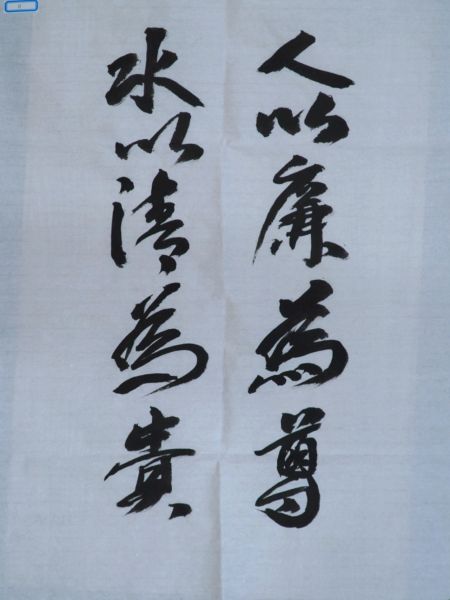 人以廉為尊
水以清為貴